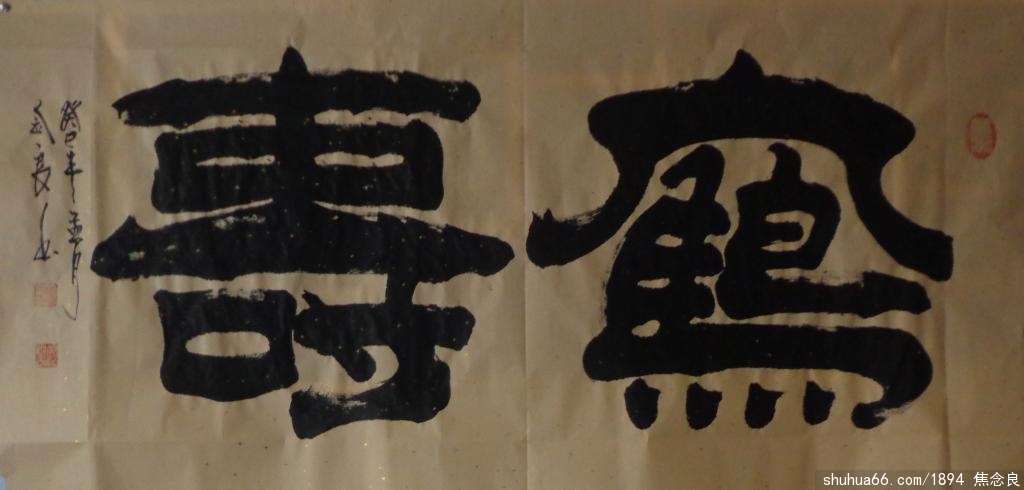 鶴壽
癸巳年孟月
念良书
shuhua66.com/1894 焦念良